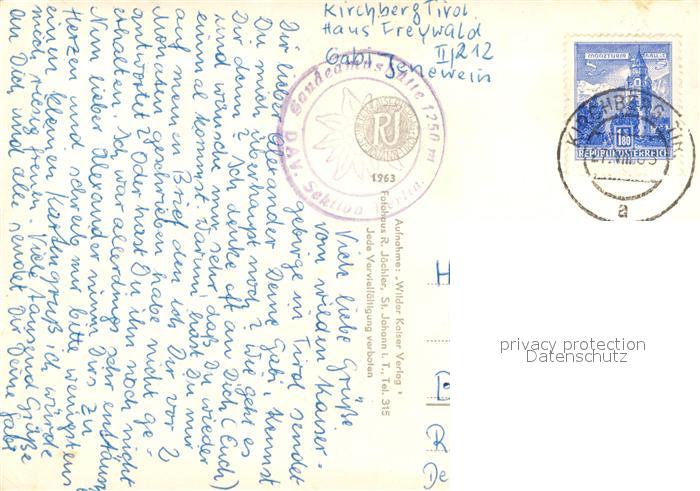 Kirchberg Tirol
Haus Freywald
II/212
Gabi Jenewein
Viele liebe Grüße
vom wilden Kaiser-
gebirge in Tirol sendet
Dir lieber Alexander Deine Gabi. Kennst
Du mich überhaupt noch? Wie geht es
Dir denn? Ich denke oft an Dich (Euch)
und wünsche mir sehr, daß Du wieder
einmal kommst. Warum hast Du mir
auf meinen Brief den ich Dir vor 2
Monaten geschrieben habe nicht ge-
antwortet? Oder hast Du ihn noch nicht
erhalten. Ich war allerdings sehr enttäuscht
Nun lieber Alexander nimm Dir's zu
Herzen und schreib mir bitte wenigstens
einen kleinen Kartengruß, ich würde
mich riesig freun. Viele tausend Grüße
an Dich und alle sendet Dir Deine Gabi
1250 m
D.A.V. Sektion
RJ
1963
Aufnahme: „Wilder Kaiser Verlag"
Fotohaus R. Jöchler, St. Johann i. T., Tel. 315
Jede Vervielfältigung verboten
MÜNZTURM HALL
S 1.80
REPUBLIK ÖSTERREICH
KIRCHBERG
a
H
R
De
privacy protection
Datenschutz